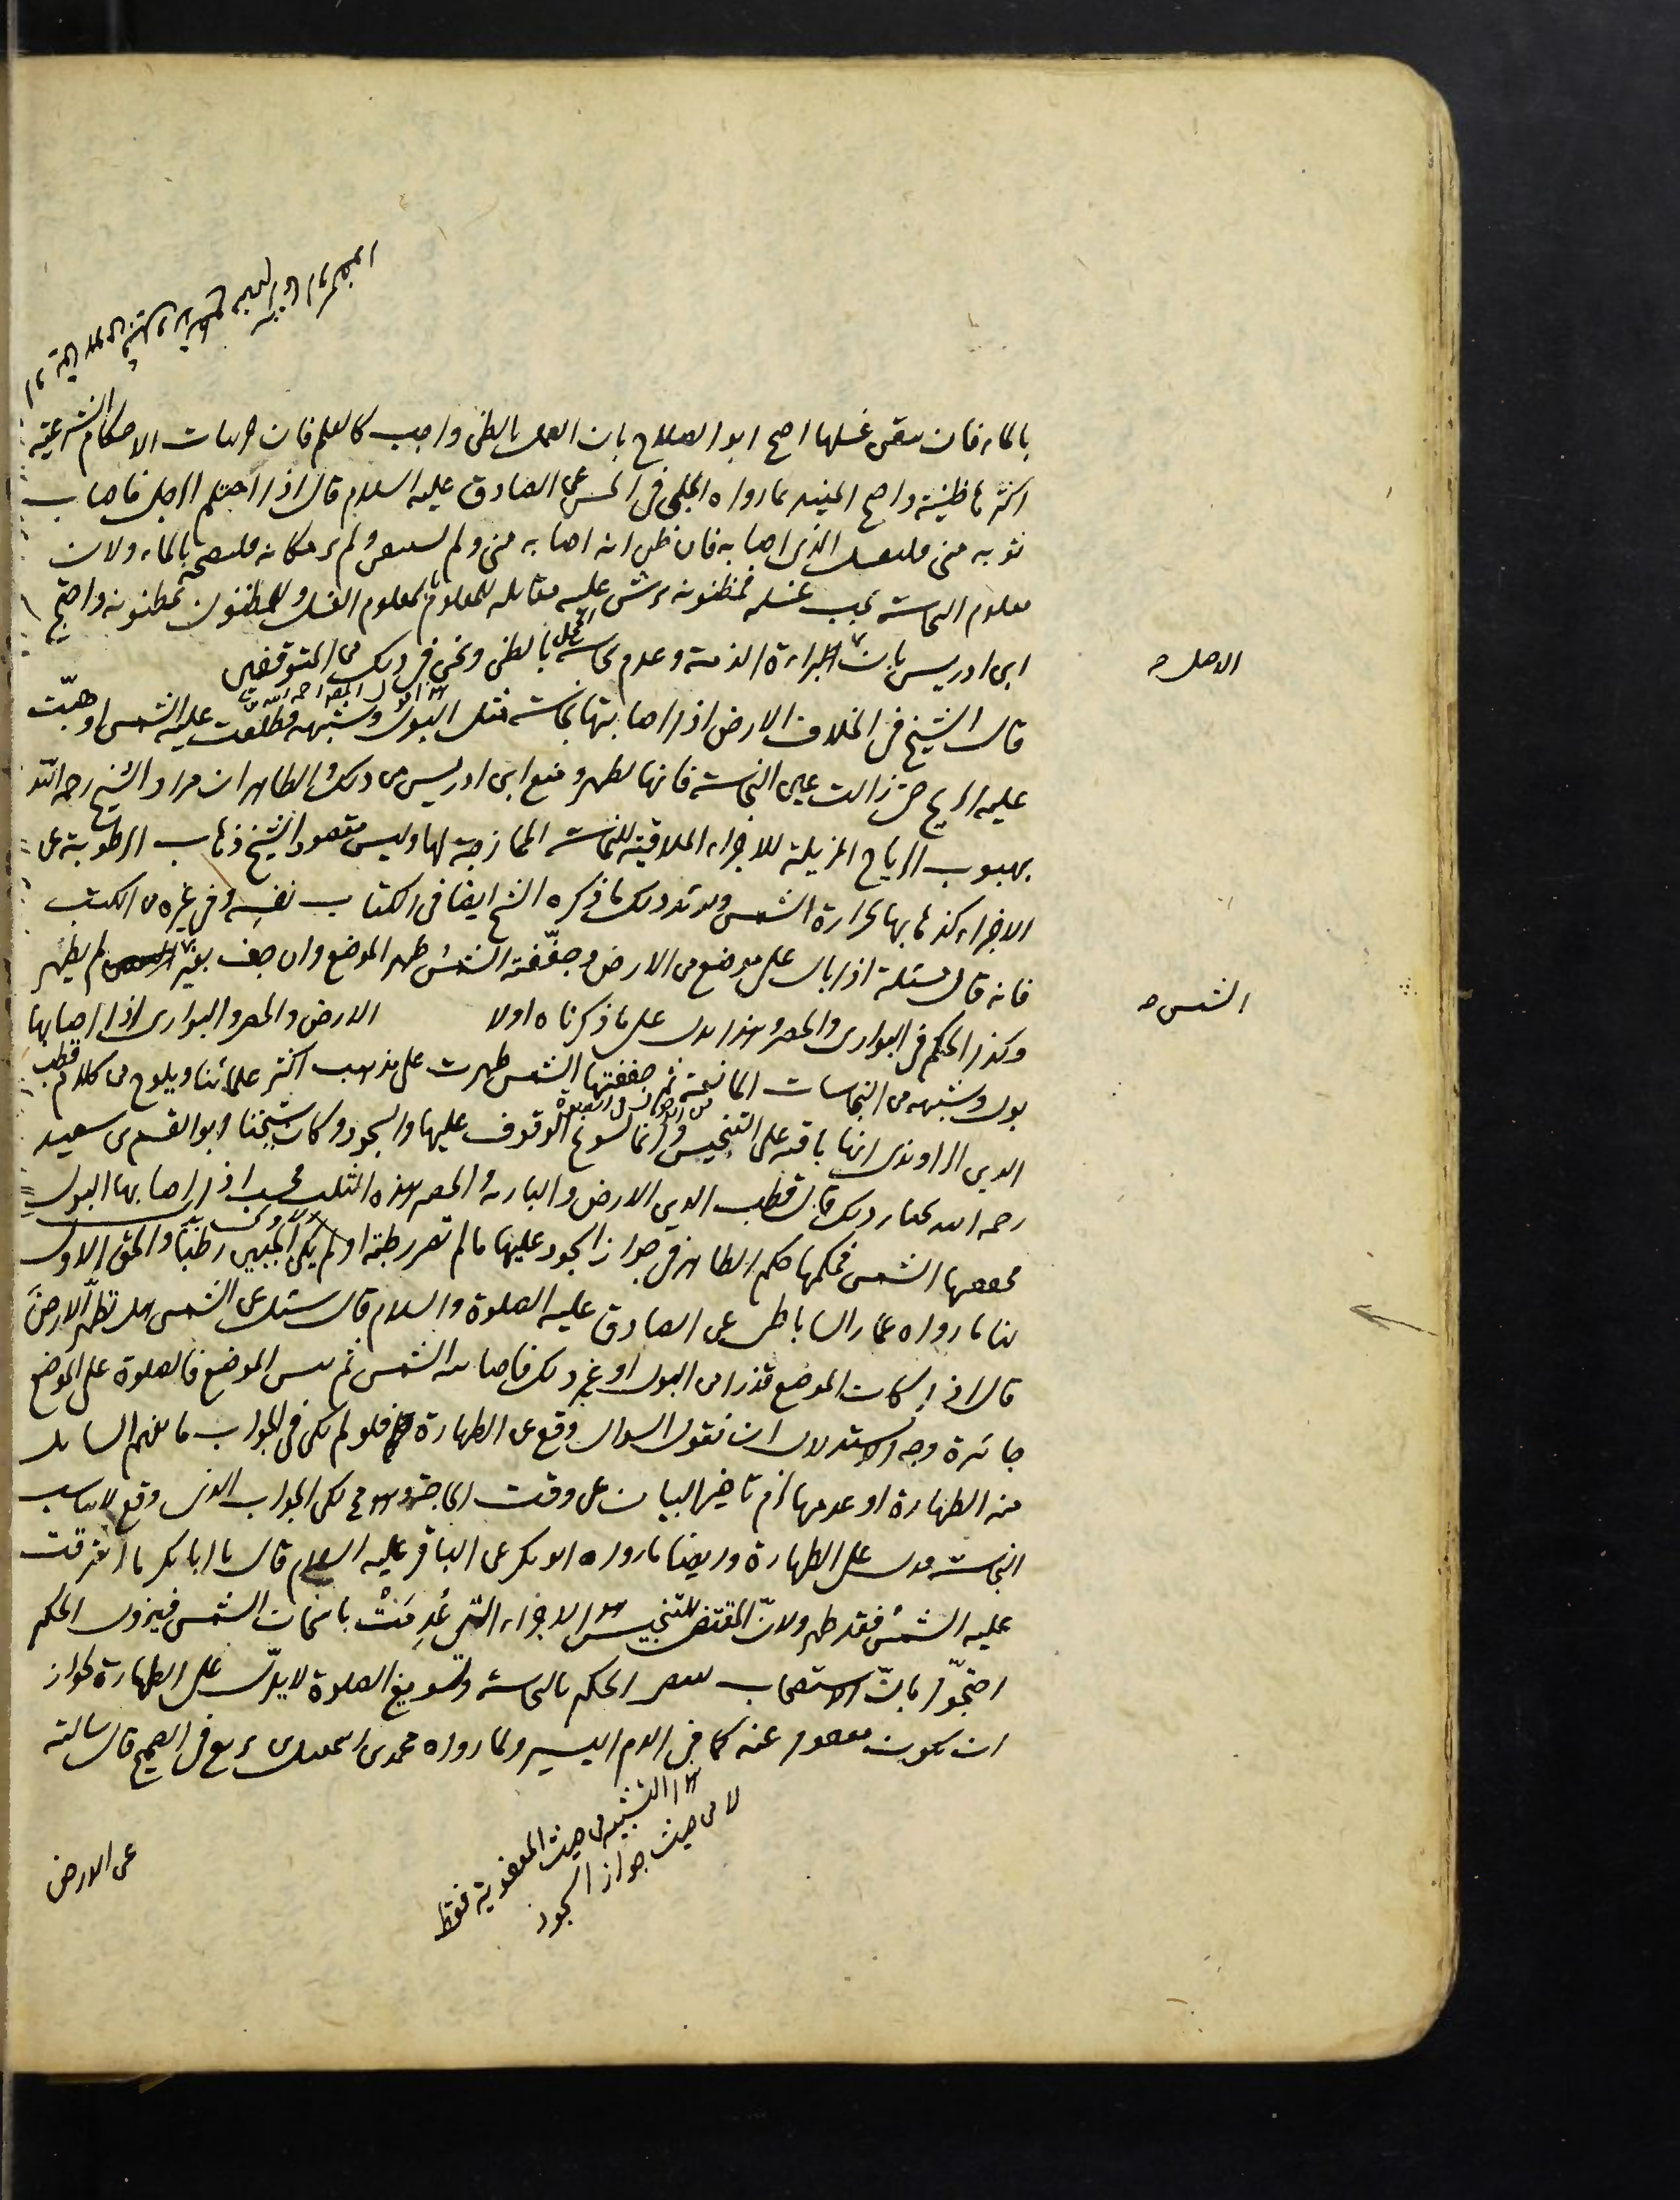 بالماء فان تيقن غسلها احتج ابو الصلاح بان العمل بالظن واجب كالعلم فان الاحكام الشرعية
اكثرها ظنية واحتج المفيد بما رواه الحلبي في الحسن عن الصادق عليه السلام قال اذا احتلم الرجل فاصاب
ثوبه مني فليغسل الذي اصابه فان ظن انه اصابه مني ولم يستيقن ولم ير مكانه فلينضحه بالماء ولان
معلوم النجاسة يجب غسله فمظنونه يرش عليه مقابلة للمعلوم بالمعلوم الغسل وللمظنون بمظنونه واحتج
ابن ادريس بان البراءة الذمة وعدم نجاسة المحل بالظن ونحن في ذلك من المتوقفين
قال الشيخ في الخلاف الارض اذا اصابتها نجاسة مثل البول وشبهه فطلعت عليه الشمس او هبّت
عليه الريح حتى زالت عين النجاسة فانها تطهر ومنع ابن ادريس من ذلك والظاهر ان مراد الشيخ رحمه الله
بهبوب الرياح المزيلة للاجزاء الملاقية للنجاسة الممازجة لها وليس مقصود الشيخ ذهاب الرطوبة عن
الاجزاء كذهابها بحرارة الشمس ذلك ما ذكره الشيخ ايضا في الكتاب نفسه وفي غيره من الكتب
فانه قال مسئلة اذا بال على موضع من الارض وجفّفته الشمس طهر الموضع وان جف بغير لم يطهر
وكذا الحكم في البواري والحصر وهذا يدل على ما ذكرناه اولا الارض والحصر والبواري اذا اصابها
بول وشبهه من النجاسات المائعة ثم جففتها الشمس طهرت على مذهب اكثر علمائنا ويلوح من كلام قطب
الدين الراوندي انها باقية على التنجيس وانما يسوغ الوقوف عليها والسجود وكان شيخنا ابو القسم بن سعيد
رحمه الله يختار ذلك قال قطب الدين الارض والبارية والحصر هذه الثلث فحسب اذا اصابها البول
فجففها الشمس فحكمها حكم الطاهر في جواز السجود عليها ما لم تصر رطبة او لم يكن الجبين رطباً والحق الاول
لنا ما رواه عمار الساباطي عن الصادق عليه الصلوة والسلام قال سئل عن الشمس هل تطهّر الارضَ
قال اذا كان الموضع قذرا من البول او غير ذلك فاصابته الشمس ثم يبس الموضع فالصلوة على الموضع
جائزة وجه الاستدلال ان نقول السوال وقع عن الطهارة فلو لم يكن في الجواب ما يفهم السائل
منه الطهارة او عدمها لزم تاخير البيان عن وقت الحاجة وهو مح لكن الجواب الذي وقع لا يناسب
النجاسة فدل على الطهارة وايضا ما رواه ابو بكر عن الباقر عليه السلام قال يا ابا بكر ما اشرقت
عليه الشمسُ فقد طهر ولانّ المقتضى للتنجيس هو الاجزاء التي عُدِمَتْ باسخان الشمس فيزول الحكم
احتجّوا بانّ الاستصحاب يقتضى الحكم بالنجاسة وتسويغ الصلوة لا يدلّ على الطهارة لجواز
ان يكون معفوا عنه كما في الدم اليسير ولما رواه محمد بن اسمعيل بن بزيع في الصحيح قال سالته
عن الارض
الاصل صح
الشمس صح
هذا التشبيه من حيث المعفوية فقط
لا من حيث جواز السجود